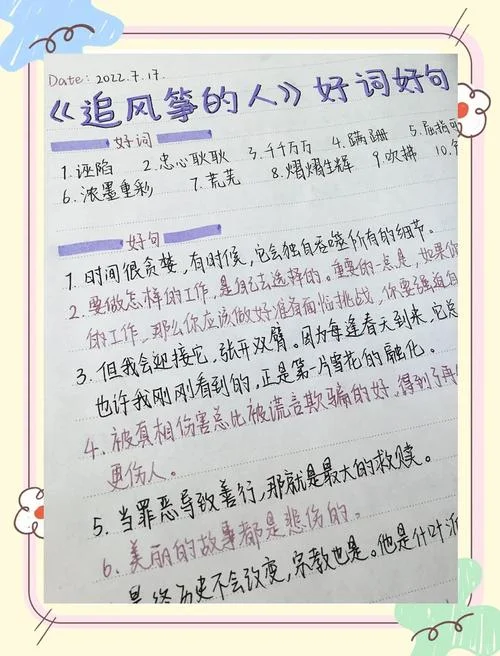 Date: 2022.7.17.
《追风筝的人》好词好句
好词
1.诬陷 2.忠心耿耿 3.千千万万 4.蹒跚 5.屈指可
6.浓墨重彩 7.荒芜 8.熠熠生辉 9.吹拂 10.
好句
1.时间很贪婪,有时候,它会独自吞噬所有的细节。
2.要做怎样的工作,是自己去选择的。重要的一点是,如果你
的工作,那么你应该做好准备面临挑战,你要强迫自
3.但我会迎接它,张开双臂。因为每逢春天到来,它总
也许我刚刚看到的,正是第一片雪花的融化。
4.被真相伤害总比被谎言欺骗的好,得到了再
更伤人。
5.当罪恶导致善行,那就是最大的救赎。
6.美丽的故事都是悲伤的。
历史不会改变,宗教也是。他是什叶派